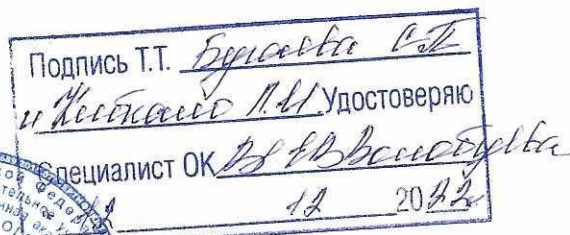 Подпись Т.Т. Бугаева С.П.
и Киткало Л.И. Удостоверяю
Специалист ОК Е.В. Волобуева
12 2022